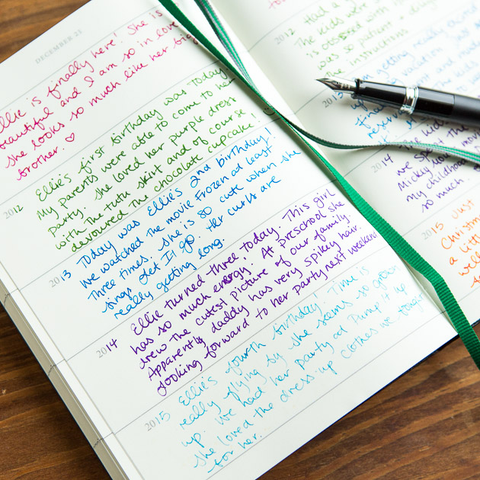 DECEMBER 21
Ellie is finally here! She is
beautiful and I am so in love
She looks so much like her big
brother. ♡
2012
Ellie's first birthday was today
My parents were able to come to her
party. She loved her purple dress
with the tutu skirt and of course
devoured the chocolate cupcake!
2013
Today was Ellie's 2nd birthday!
We watched the movie Frozen at least
Three times. She is so cute when she
sings Let It go. Her curls are
really getting long.
2014
Ellie turned three today. This girl
has so much energy! At preschool she
drew the cutest picture of our family.
Apparently daddy has very spikey hair.
Looking forward to her party next weekend
2015
Ellie's fourth birthday! Time is
really flying by. She seems so grown
up. We had her party at
she loved the dress-up clothes we
for her.
2012
Had a
The kids were
instructions
2013
getting ready
2014
the kids
we
Mickey
my childhood
so much
2015
Just
Christmas
a little